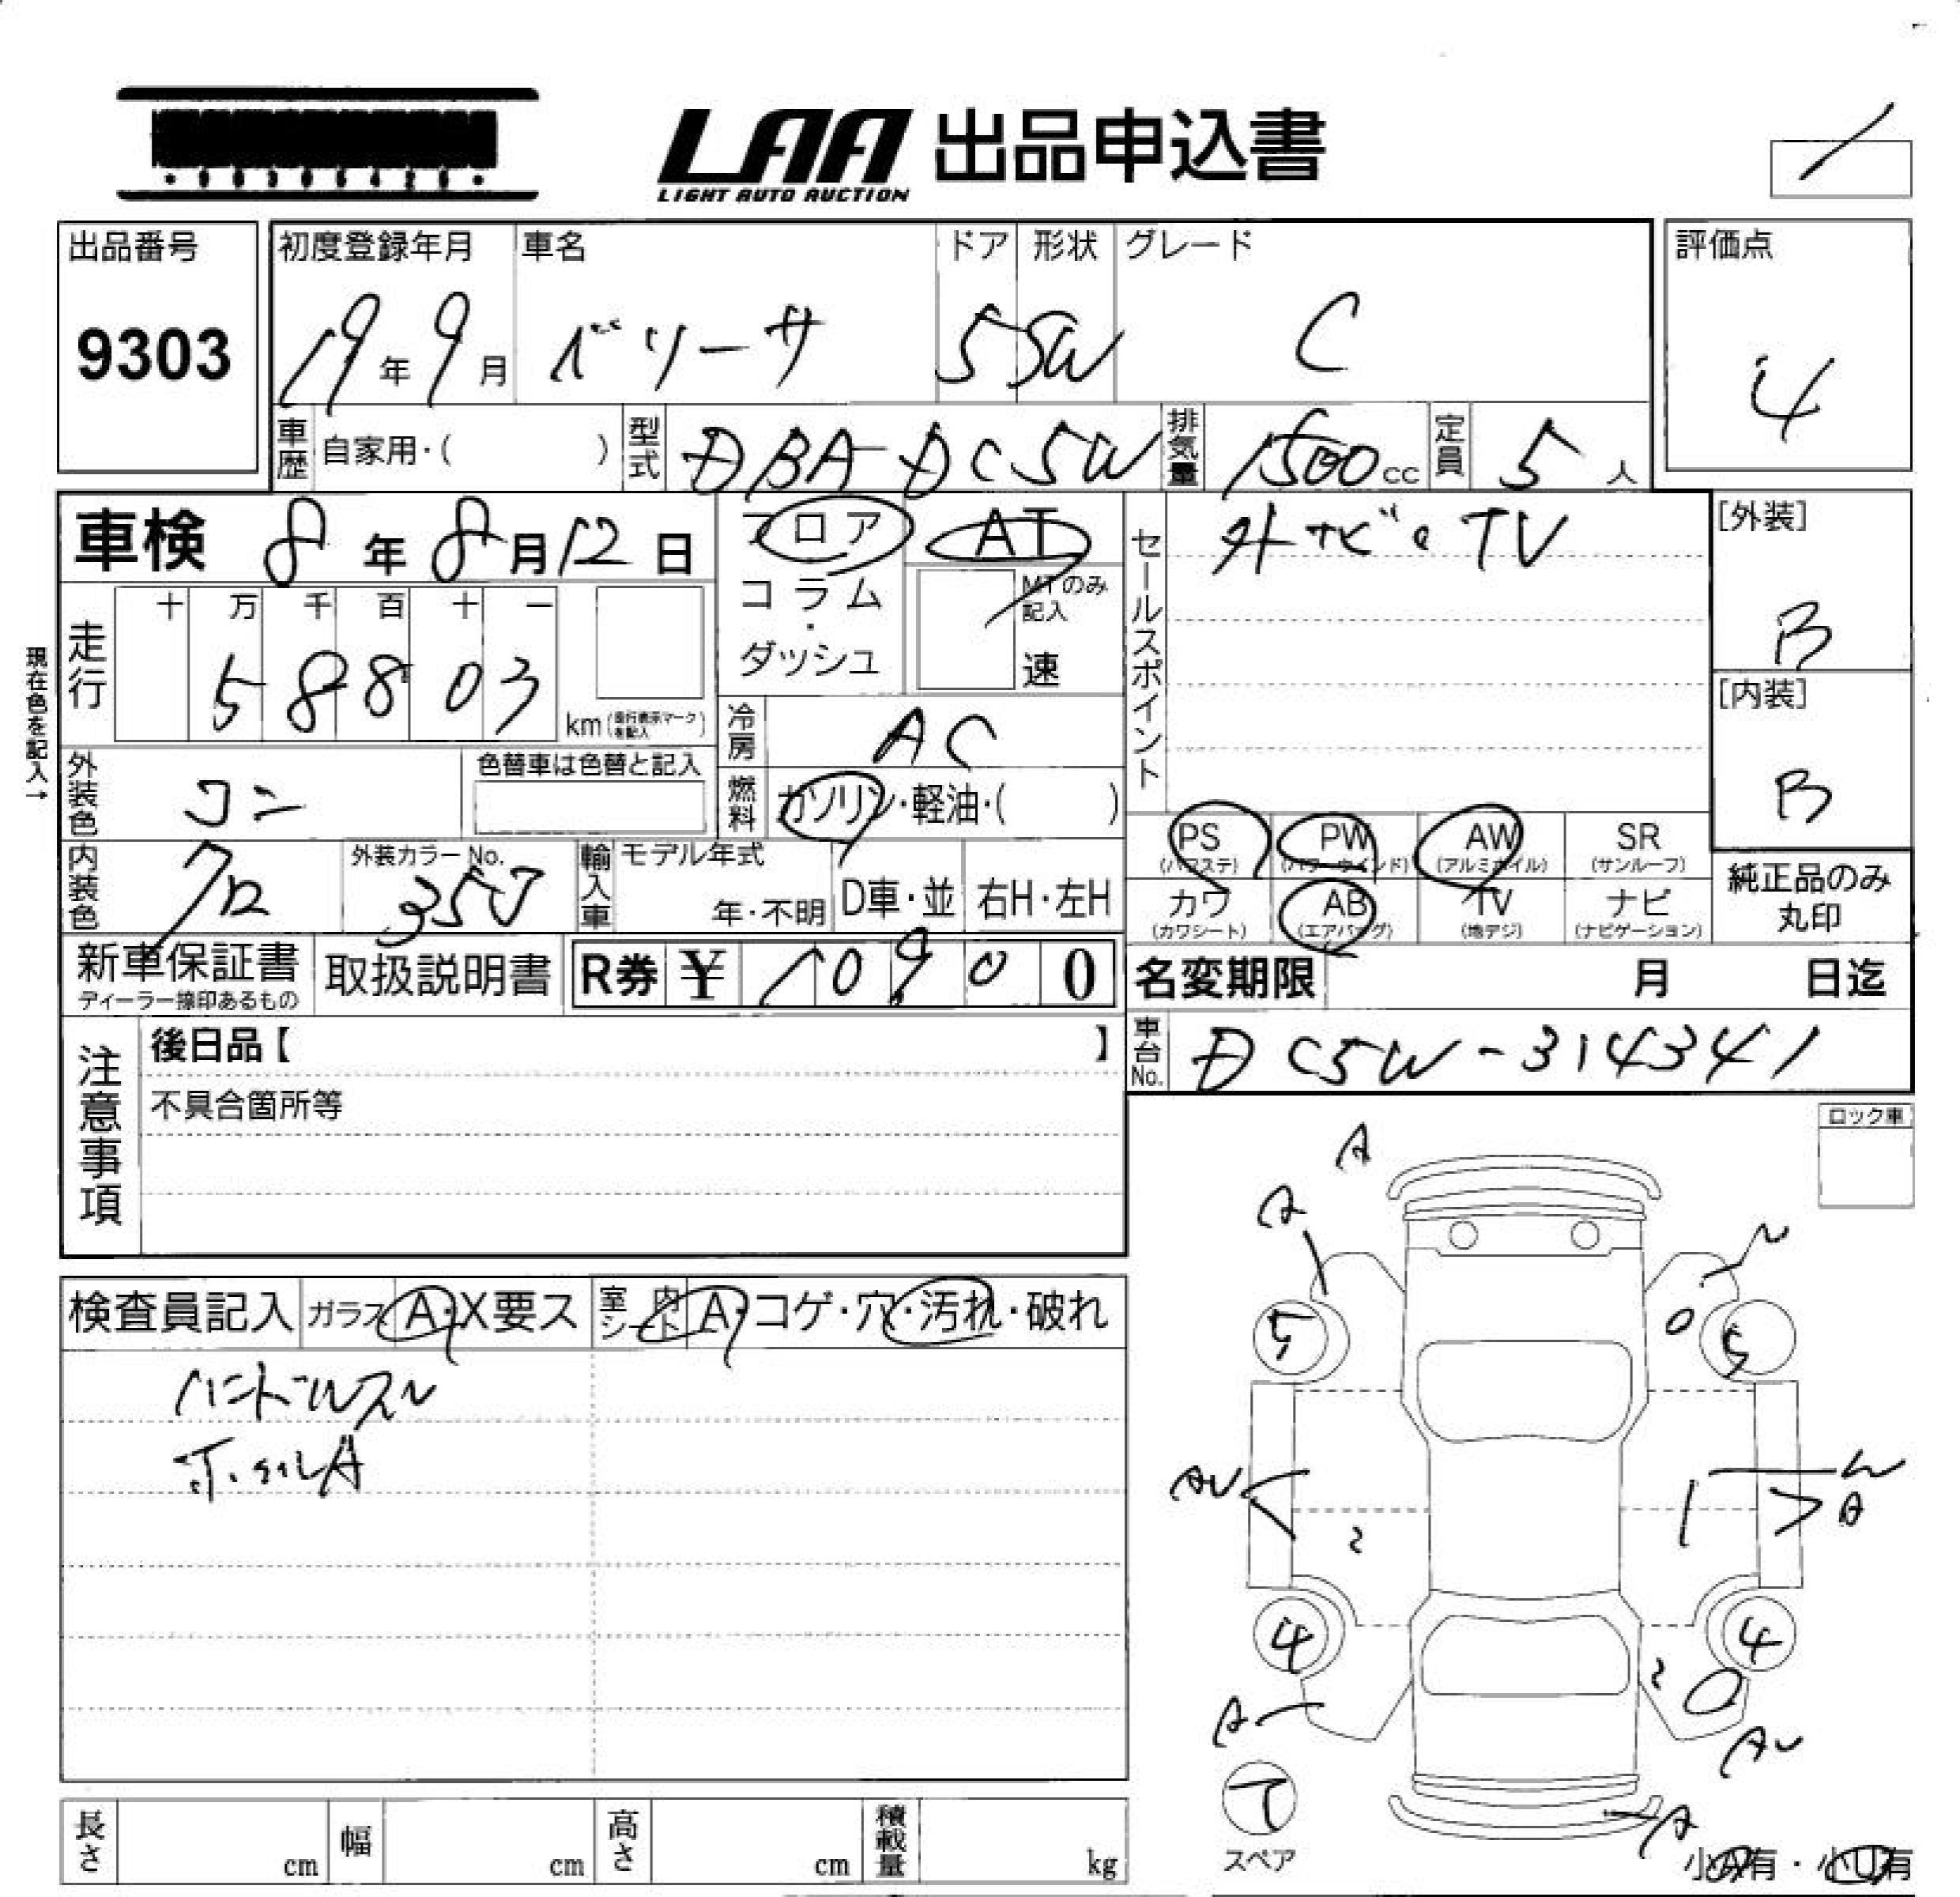 LAA 出品申込書
LIGHT AUTO AUCTION
出品番号
9303
初度登録年月
19年9月
車名
ベリーサ
ドア
5
形状
SW
グレード
C
評価点
4
車歴 自家用・( )
型式 DBA-DC5W
排気量 1500cc
定員 5人
車検 8年8月12日
フロア
コラム・ダッシュ
AT
MTのみ記入
速
セールスポイント
外ナビ・TV
[外装]
B
[内装]
B
現在色を記入→
走行 十 万 千 百 十 一
5 8 8 0 3
km(走行表示マークを記入)
冷房 AC
燃料 ガソリン・軽油・( )
外装色 コン
色替車は色替と記入
内装色 クロ
外装カラーNo.
35J
輸入車 モデル年式
年・不明
D車・並
右H・左H
PS (パワステ)
PW (パワーウインド)
AW (アルミホイル)
SR (サンルーフ)
カワ (カワシート)
AB (エアバッグ)
TV (地デジ)
ナビ (ナビゲーション)
純正品のみ
丸印
新車保証書
ディーラー捺印あるもの
取扱説明書
R券 ¥ 10900
名変期限 月 日迄
車台No. DC5W-314341
注意事項
後日品【 】
不具合箇所等
ロック車
検査員記入
ガラス A・X要ス
室内シート A・コゲ・穴・汚れ・破れ
ハンドルスレ
ホイルA
A
A
5
5
A
4
4
A
A
スペア
小A有・小U有
長さ cm
幅 cm
高さ cm
積載量 kg